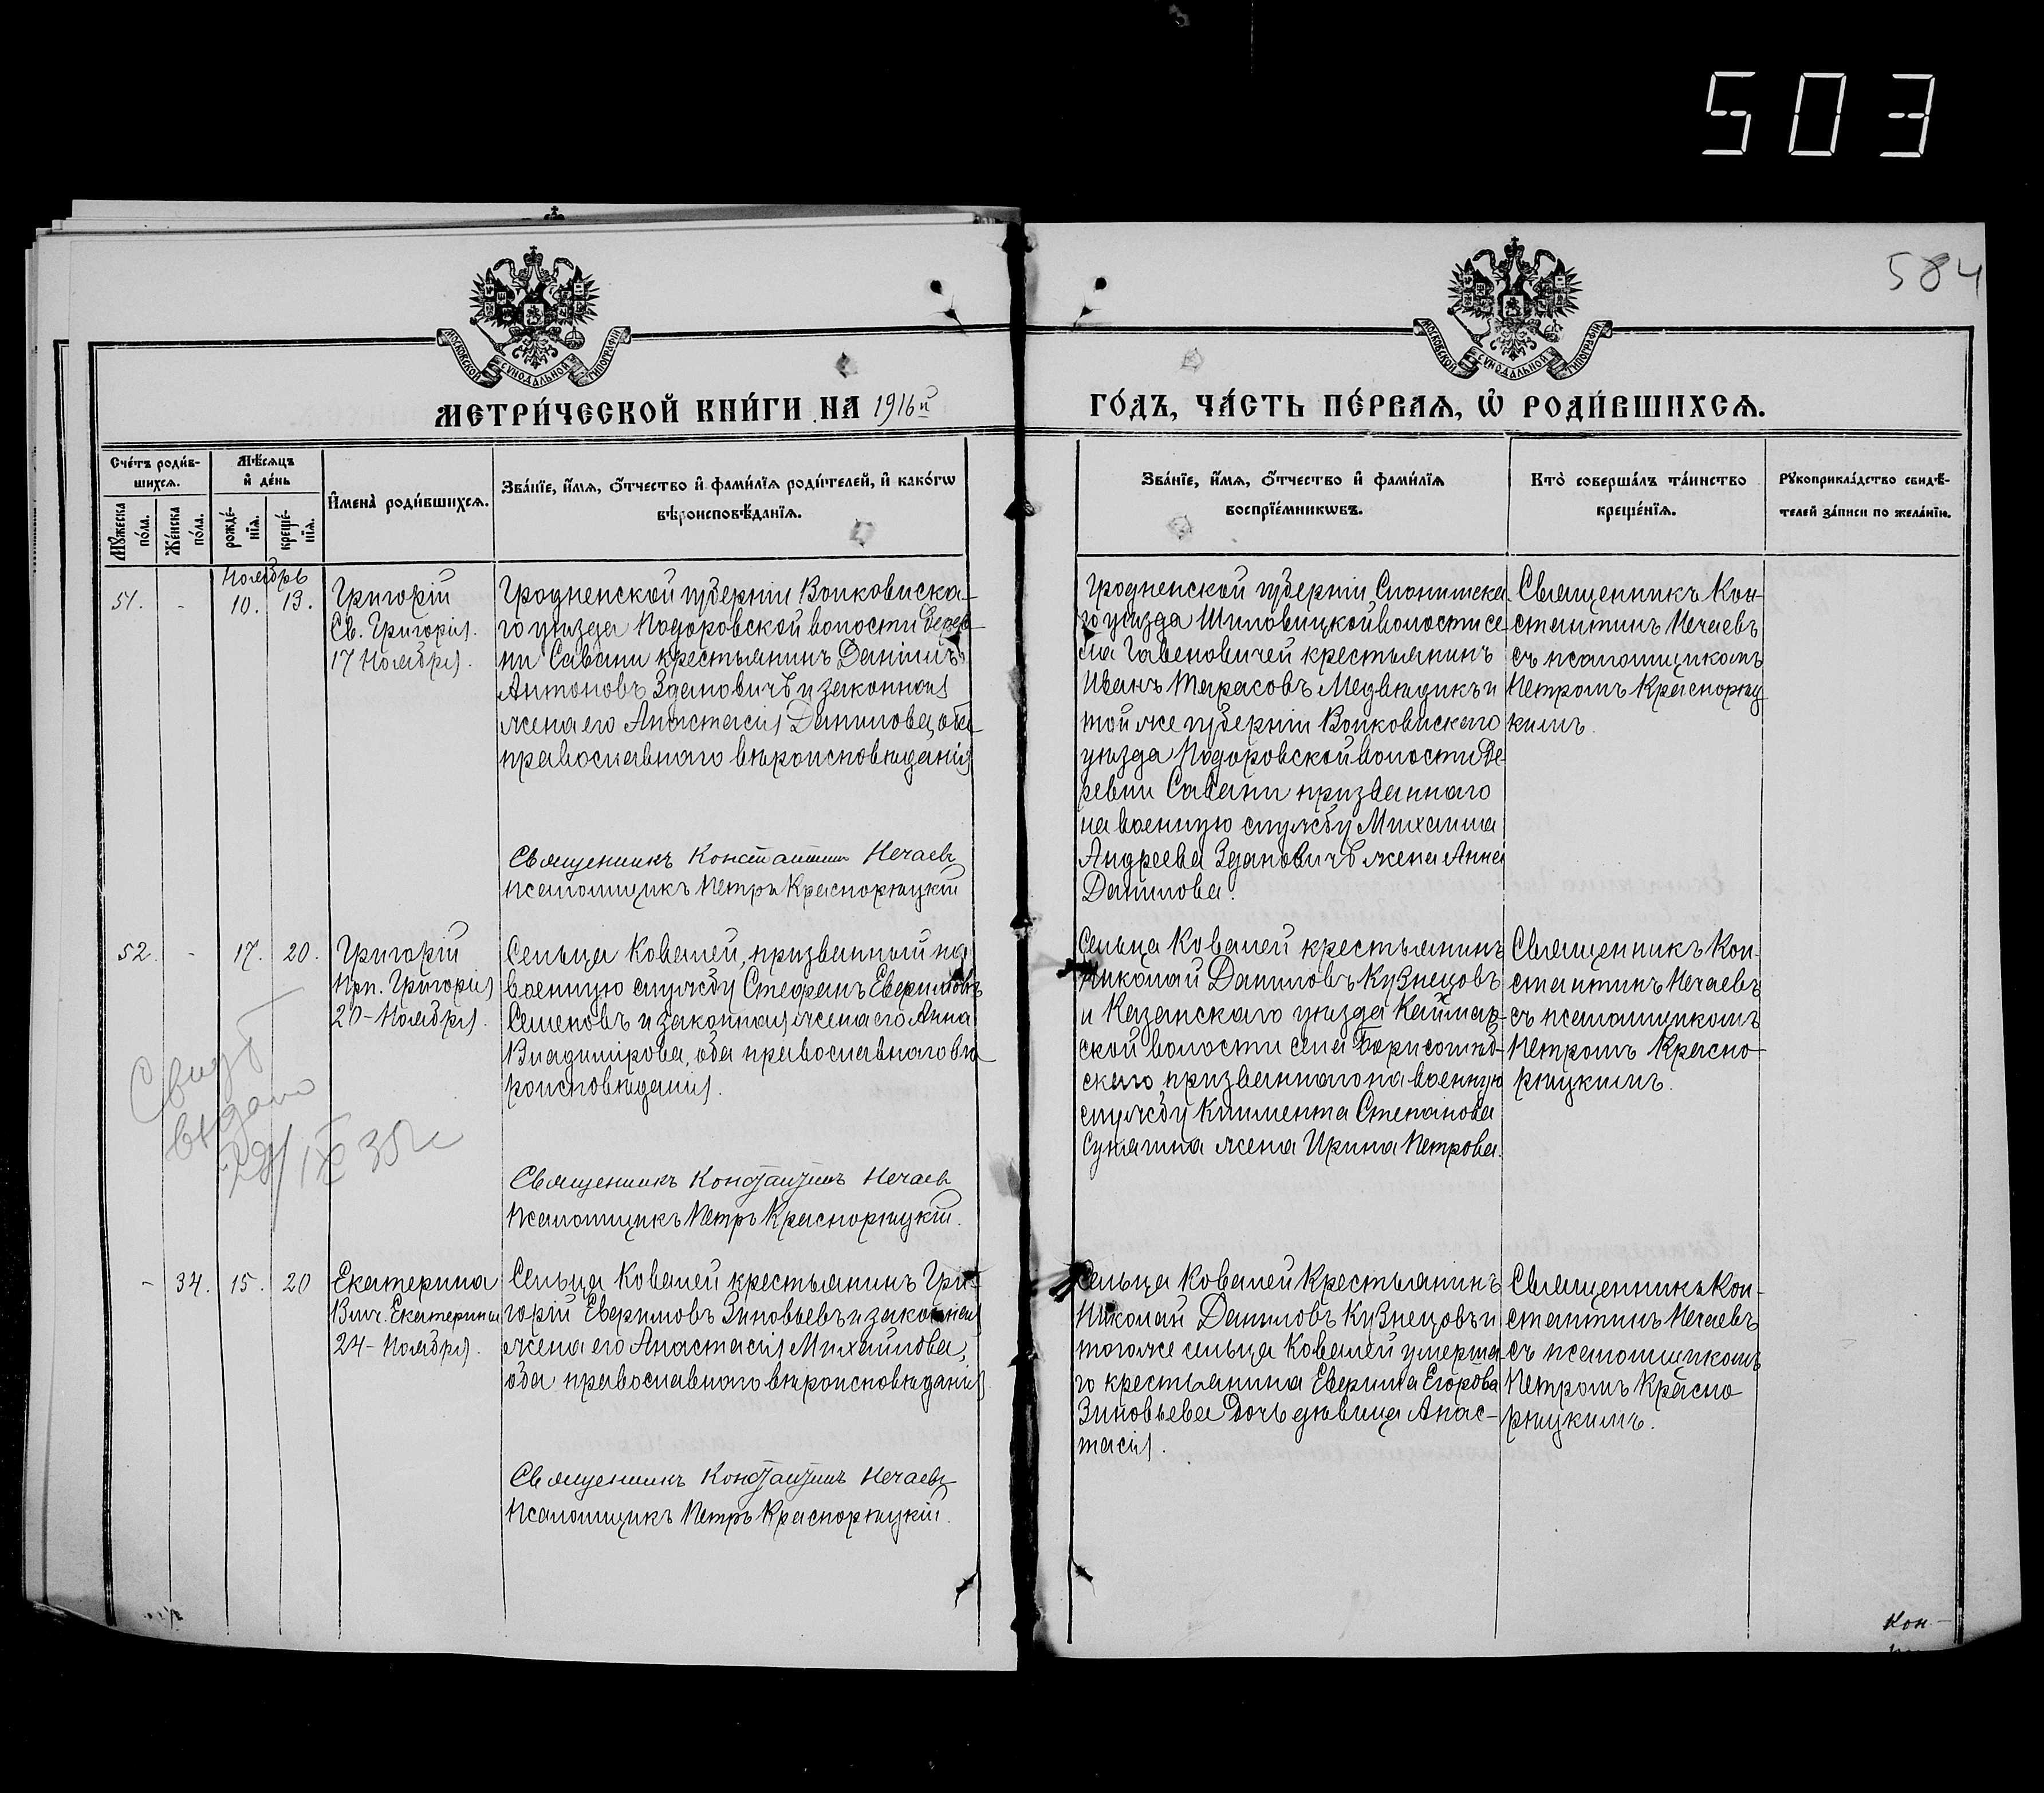 503
584
МОСКОВСКОЙ СѴНОДАЛЬНОЙ ТИПОГРАФІИ
МОСКОВСКОЙ СѴНОДАЛЬНОЙ ТИПОГРАФІИ
МЕТРИ́ЧЕСКОЙ КНИ́ГИ НА 1916й
ГО́ДЪ, ЧА́СТЬ ПЕ́РВАѦ, Ѽ РОДИ́ВШИХСѦ.
Сче́тъ роди́в-
шихсѧ.
Мѣ́сѧцъ
и҆ де́нь
Мꙋ́жеска
по́ла.
Же́нска
по́ла.
рожде́-
нїѧ.
креще́-
нїѧ.
И҆мена̀ роди́вшихсѧ.
Зва́нїе, и҆́мѧ, ѻ҆́тчество и҆ фами́лїѧ роди́телей, и҆ како́гѡ
вѣроисповѣ́данїѧ.
Зва́нїе, и҆́мѧ, ѻ҆́тчество и҆ фами́лїѧ
воспрїе́мникѡвъ.
Кто̀ соверша́лъ та́инство
креще́нїѧ.
Рꙋкоприкла́дство свидѣ́-
телей за́писи по жела́нїю.
Ноябрь
51. - 10. 13.
Григорій
Св. Григорія.
17 Ноября.
Гродненской губерніи Волковиска-
го уѣзда Подоровской волости дерев-
ни Савани крестьянинъ Даніилъ
Антоновъ Здановичъ и законная
жена его Анастасія Данилова, оба
православнаго вѣроисповѣданія
Священникъ Константинъ Нечаевъ
Псаломщикъ Петръ Краснорѣцкій
Гродненской губерніи Слонимска-
го уѣзда Шиловицкой волости се-
ла Гавеновичей крестьянинъ
Иванъ Тарасовъ Медвѣдикъ и
той же губерніи Волковискаго
уѣзда Подоровской волости де-
ревни Савани призваннаго
на военную службу Михаила
Андреева Здановичъ жена Анна
Данилова.
Священникъ Кон-
стантинъ Нечаевъ
съ псаломщикомъ
Петромъ Краснорѣц-
кимъ.
52. - 17. 20.
Григорій
Прп. Григорія
20 - Ноября.
Сельца Ковалей, призванный на
военную службу Стефанъ Евфимовъ
Семеновъ и законная жена его Анна
Владимірова, оба православнаго вѣ-
роисповѣданія.
Священникъ Константинъ Нечаев
Псаломщикъ Петръ Краснорѣцкій.
Сельца Ковалей крестьянинъ
Николай Даниловъ Кузнецовъ
и Казанскаго уѣзда Каймар-
ской волости села Борисоглѣб-
скаго призваннаго на военную
службу Климента Степанова
жена Ирина Петрова.
Священникъ Кон-
стантинъ Нечаевъ
съ псаломщикомъ
Петромъ Красно-
рѣцкимъ.
Свид
видано
29/IX 35 г
- 34. 15. 20
Екатерина
Влмч. Екатерины
24 - Ноября.
Сельца Ковалей крестьянинъ Гри-
горій Евфимовъ Зиновьевъ и законная
жена его Анастасія Михайлова,
оба православнаго вѣроисповѣданія.
Священникъ Константинъ Нечаевъ
Псаломщикъ Петръ Краснорѣцкій.
Сельца Ковалей Крестьянинъ
Николай Даниловъ Кузнецовъ и
того же сельца Ковалей умерша-
го крестьянина Евфима Егорова
Зиновьева дочь дѣвица Анас-
тасія.
Священникъ Кон-
стантинъ Нечаевъ
съ псаломщикомъ
Петромъ Красно
рѣцкимъ.
Кон-